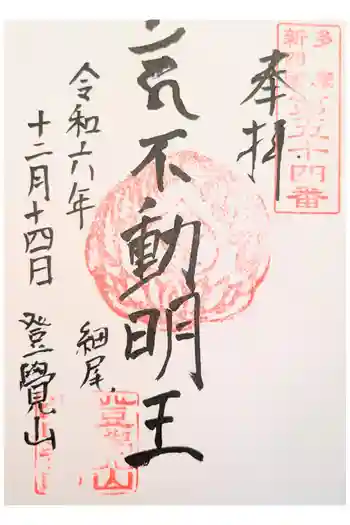 多摩
新四国
第五十四番
奉拝
不動明王
令和六年
十二月十四日
細尾
登覺山